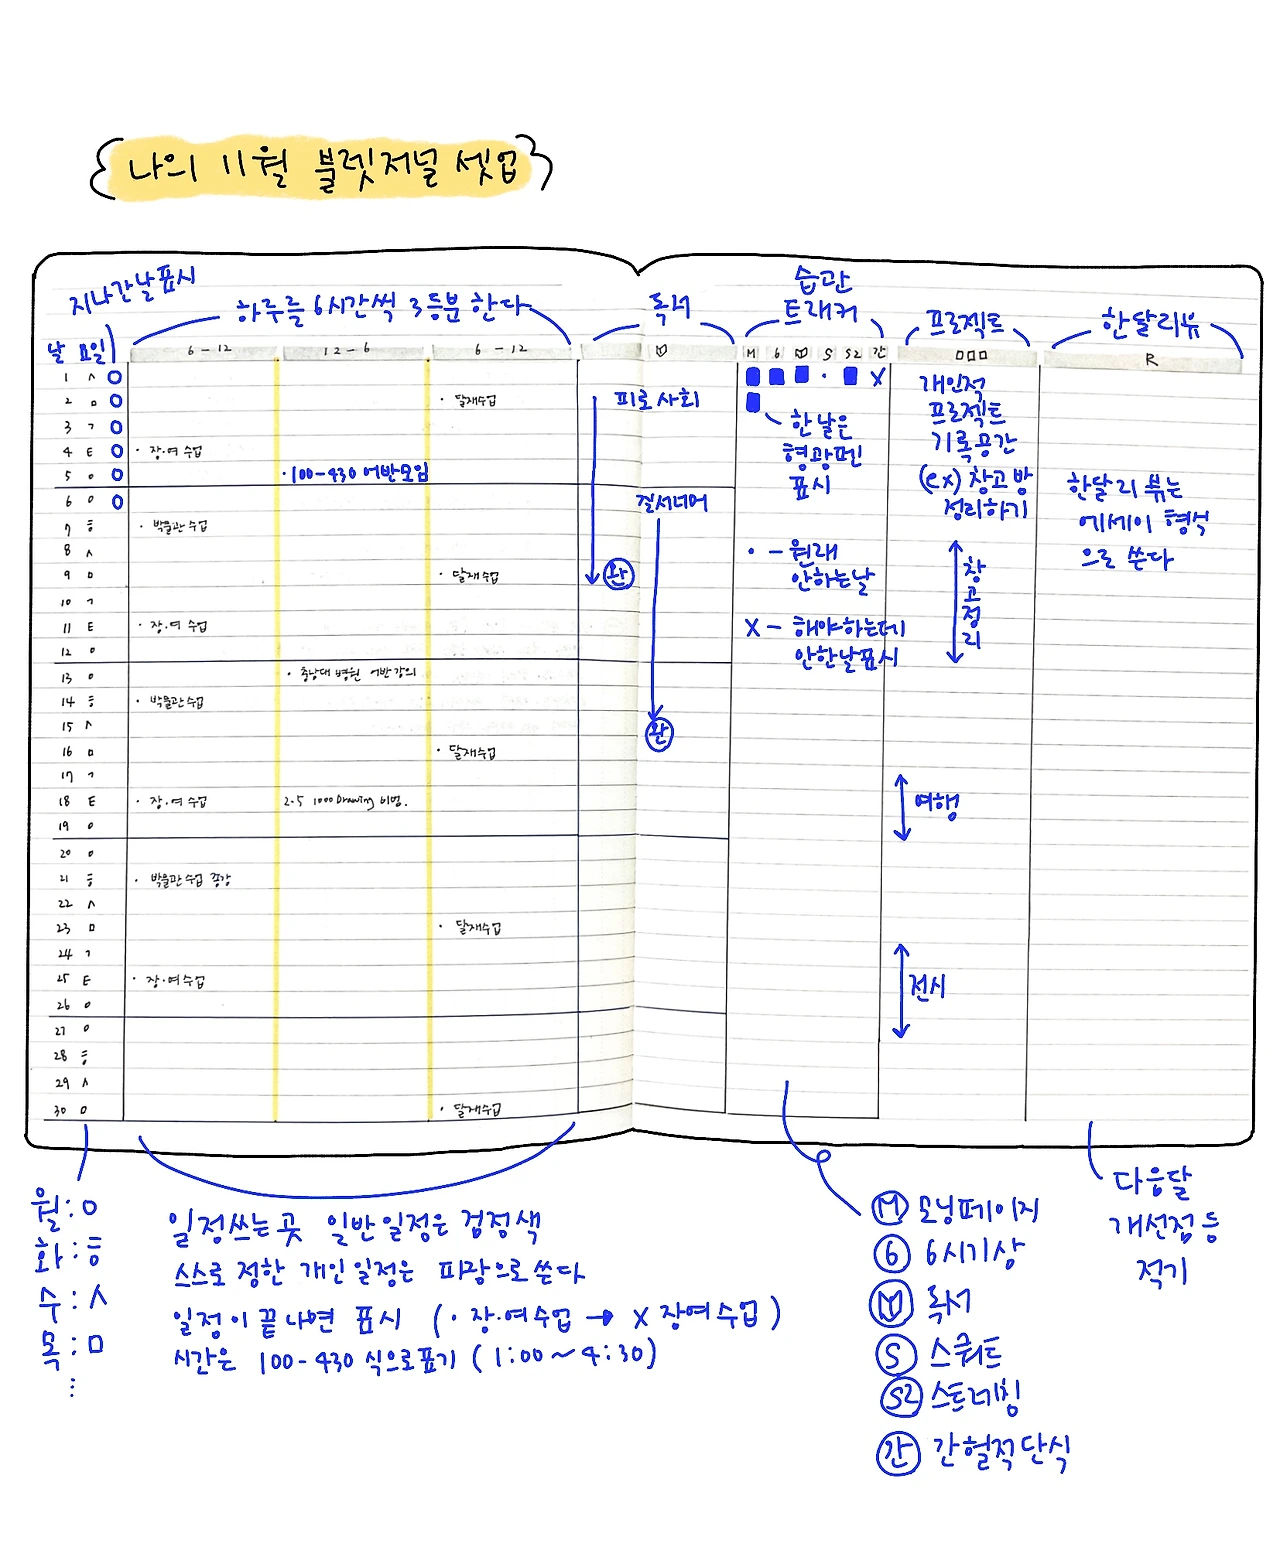 나의 11월 불렛저널 셋업
지나간날표시
하루를 6시간씩 3등분 한다
독서
습관
트래커
프로젝트
한달리뷰
날 요일
6 - 12
12 - 6
6 - 12
M 6 S S2 간
R
1 ㅅ
2 ㅁ · 달재수업
3 ㄱ
4 ㅌ · 장·여 수업
5 ㅇ · 100-430 어반모임
6 ㅇ
7 ㅎ · 박물관 수업
8 ㅅ
9 ㅁ · 달재수업
10 ㄱ
11 ㅌ · 장·여 수업
12 ㅇ
13 ㅇ · 충남대 병원 어반강의
14 ㅎ · 박물관수업
15 ㅅ
16 ㅁ · 달재수업
17 ㄱ
18 ㅌ · 장·여 수업 2-5 1000 Drawing 비평.
19 ㅇ
20 ㅇ
21 ㅎ · 박물관 수업 종강
22 ㅅ
23 ㅁ · 달재수업
24 ㄱ
25 ㅌ · 장·여수업
26 ㅇ
27 ㅇ
28 ㅎ
29 ㅅ
30 ㅁ · 달재수업
피로 사회
완
질서너머
완
X
한 날은
형광펜
표시
· - 원래
안하는날
X - 해야하는데
안한날표시
개인적
프로젝트
기록공간
(ex) 창고방
정리하기
창고정리
여행
전시
한달 리뷰는
에세이 형식
으로 쓴다
월 : ㅇ
화 : ㅎ
수 : ㅅ
목 : ㅁ
⋮
일정쓰는 곳 일반일정은 검정색
스스로 정한 개인일정은 파랑으로 쓴다
일정이 끝나면 표시 ( · 장·여수업 → X 장여수업 )
시간은 100-430 식으로표기 ( 1:00 ~ 4:30 )
M 모닝페이지
6 6시기상
독서
S 스쿼트
S2 스트레칭
간 간헐적단식
다음달
개선점 등
적기